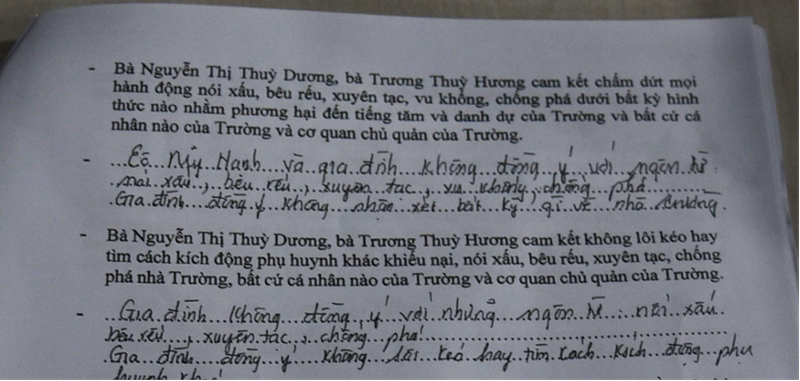 - Bà Nguyễn Thị Thuỳ Dương, bà Trương Thuỳ Hương cam kết chấm dứt mọi
hành động nói xấu, bêu rếu, xuyên tạc, vu khống, chống phá dưới bất kỳ hình
thức nào nhằm phương hại đến tiếng tăm và danh dự của Trường và bất cứ cá
nhân nào của Trường và cơ quan chủ quản của Trường.
- Cô Mỹ Hạnh và gia đình không đồng ý với ngôn từ:
nói xấu, bêu rếu, xuyên tạc, vu khống, chống phá
Gia đình đồng ý không nhận xét bất kỳ gì về nhà trường.
- Bà Nguyễn Thị Thuỳ Dương, bà Trương Thuỳ Hương cam kết không lôi kéo hay
tìm cách kích động phụ huynh khác khiếu nại, nói xấu, bêu rếu, xuyên tạc, chống
phá nhà Trường, bất cứ cá nhân nào của Trường và cơ quan chủ quản của Trường.
- Gia đình không đồng ý với những ngôn từ: nói xấu
bêu rếu, xuyên tạc, chống phá
Gia đình đồng ý không lôi kéo hay tìm cách kích động phụ